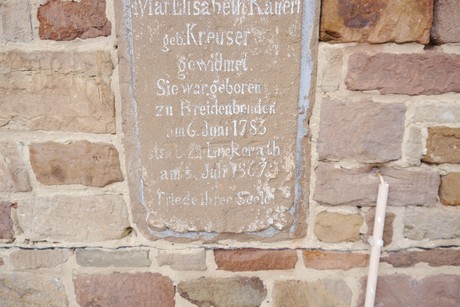 Mar. Elisabeth Kauert
geb. Kreuser
gewidmet.
Sie war geboren
zu Breidenbenden
am 6. Juni 1783
starb zu Lückerath
am 3. Juli 1863
Friede ihrer Seele